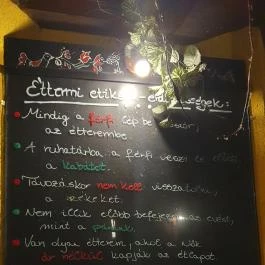 Éttermi etik
• Mindig a férfi lép be
az étterembe.
• A ruhatárba a férfi
a kabátot.
• Távozáskor nem kell visszatolni,
a székeket.
• Nem illik előbb befejezni az evést,
mint a
• Van olyan étterem, ahol a nők
ár nélküli kapják az étlapot.